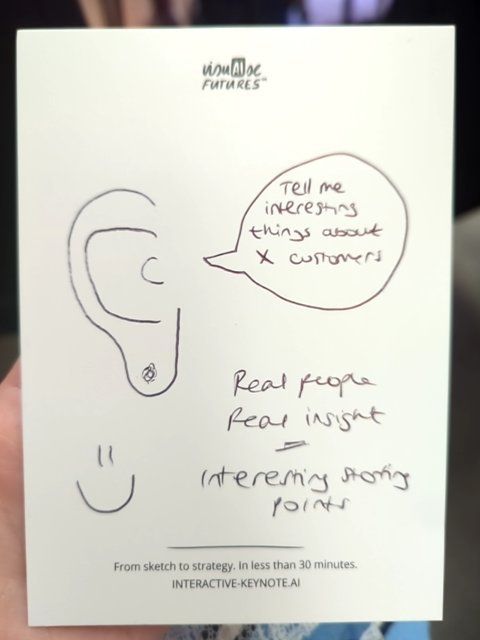 visuAlise
FUTURES™
Tell me
interesting
things about
X customers
Real people
Real insight
=
Interesting starting
points
From sketch to strategy. In less than 30 minutes.
INTERACTIVE-KEYNOTE.AI